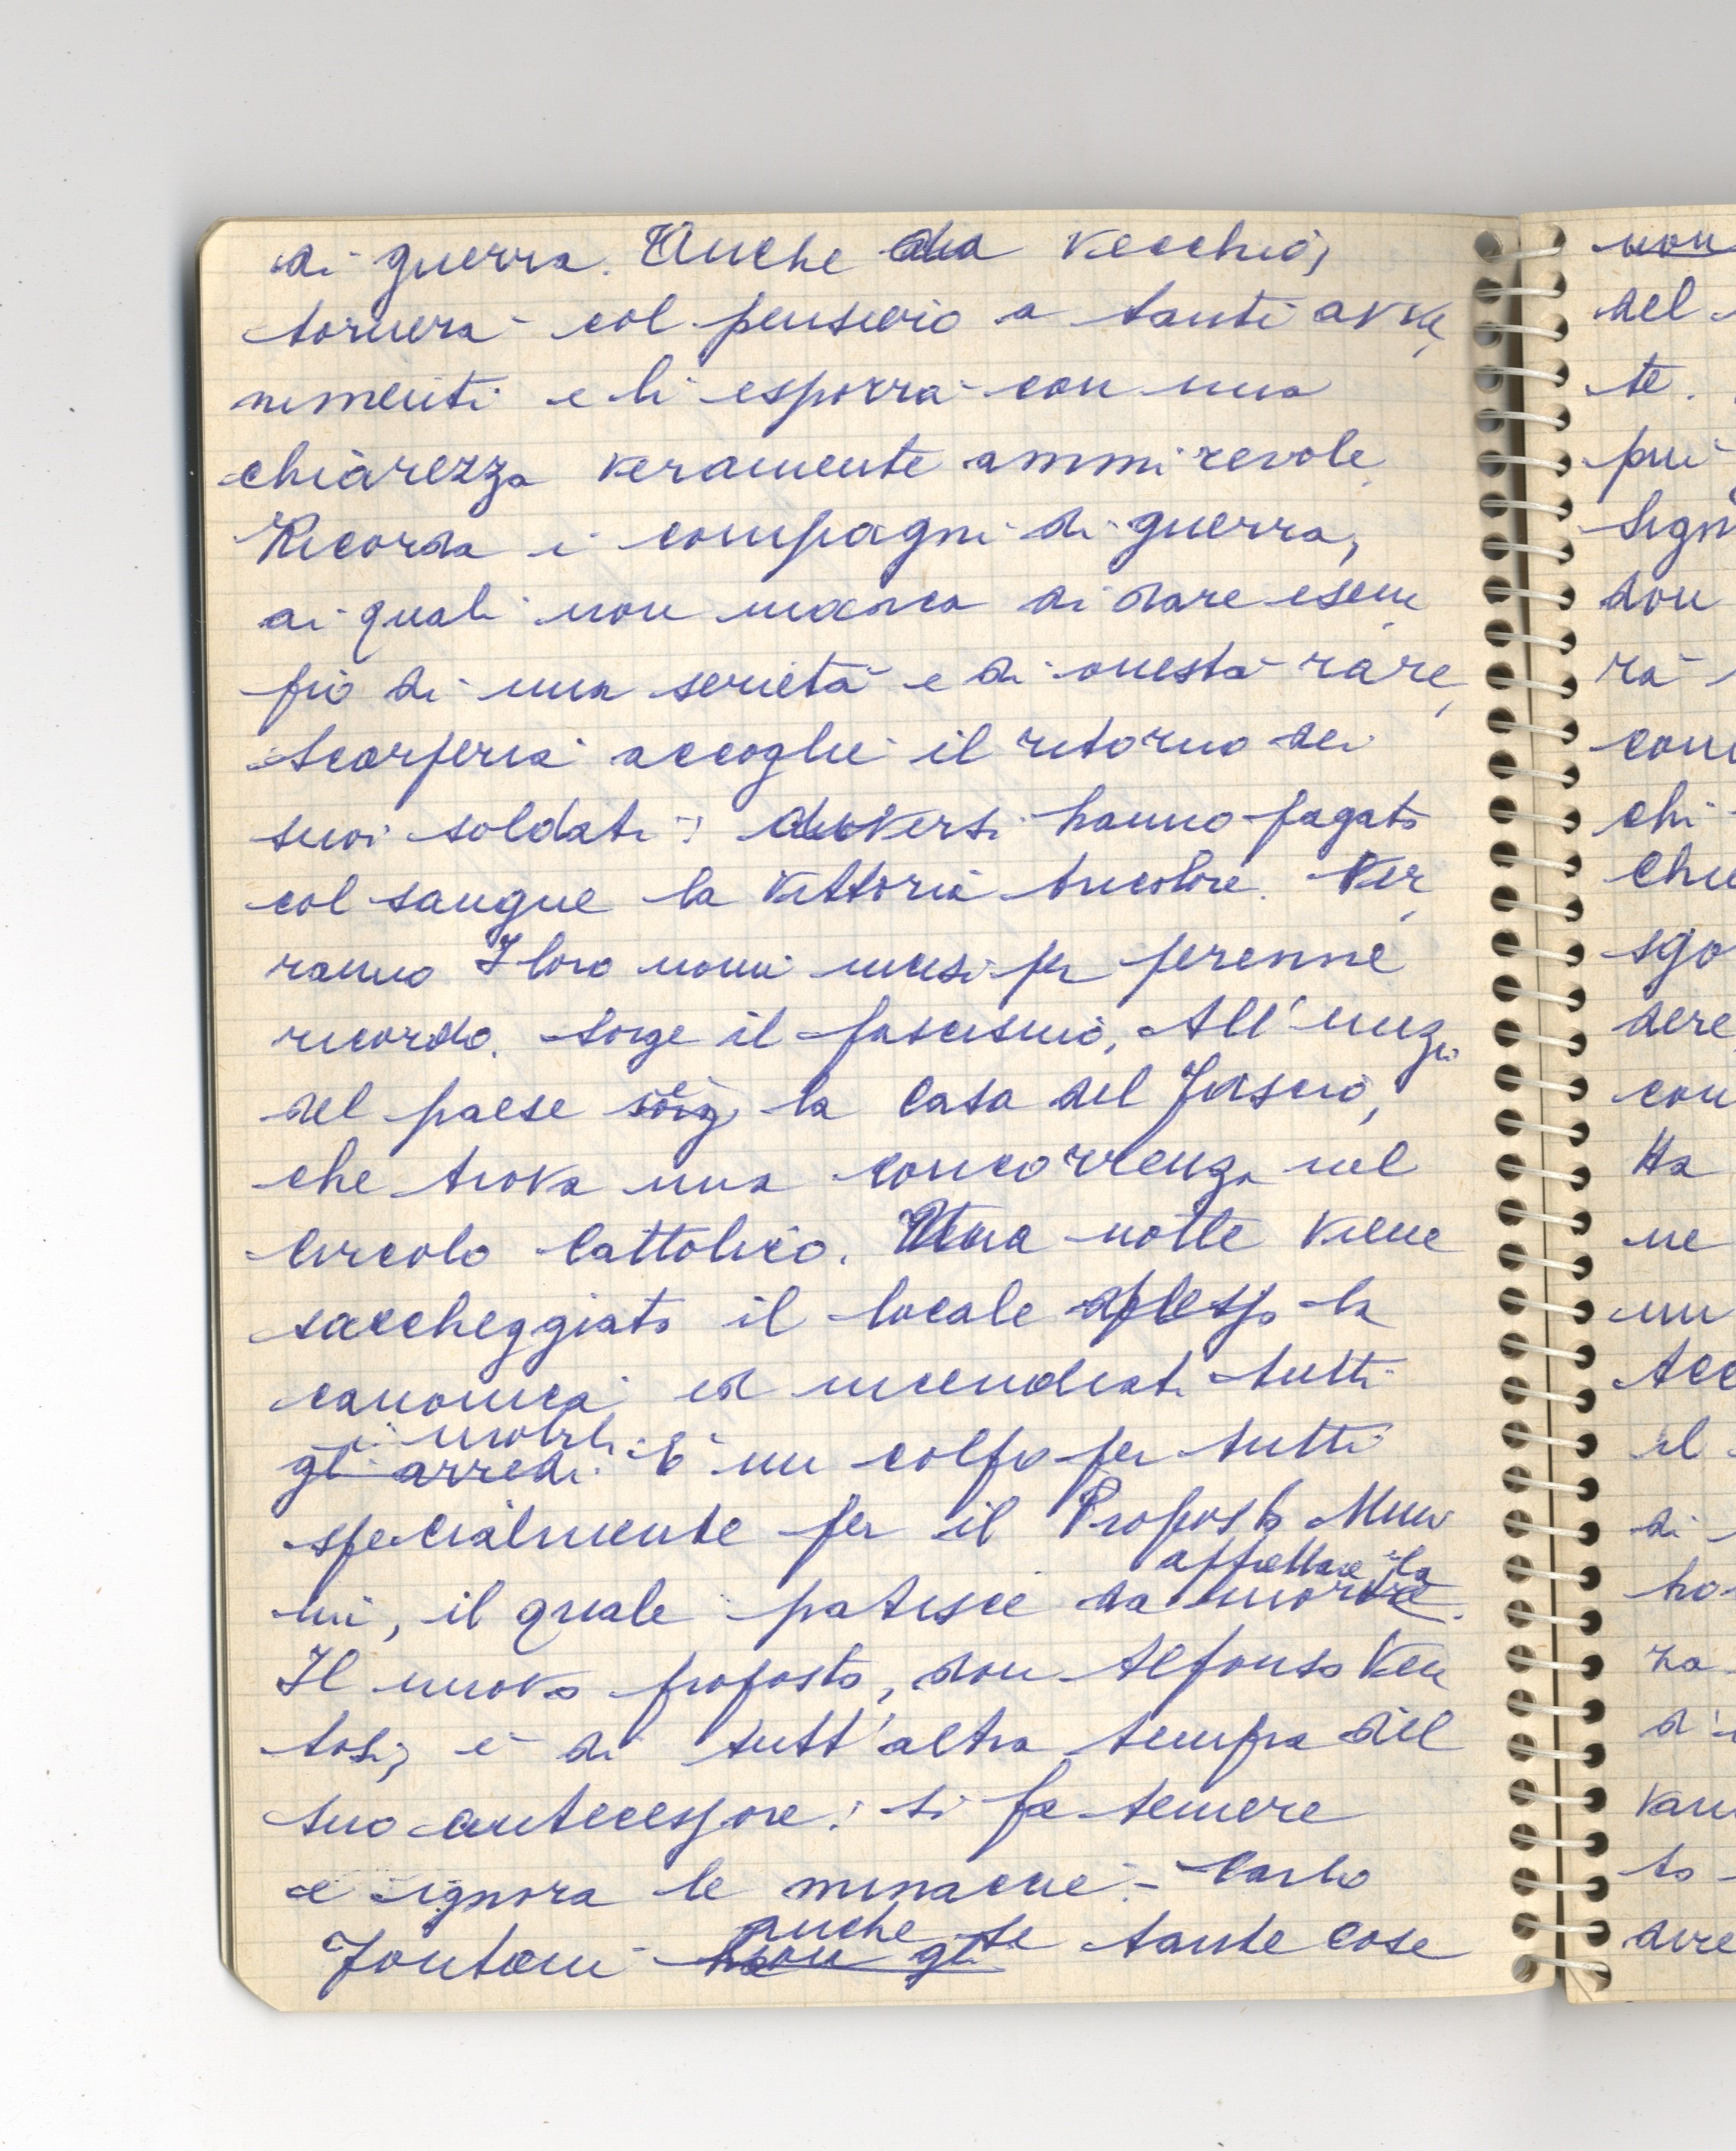 di guerra. Anche da vecchio,
tornerà col pensiero a tanti avve
nimenti e li esporrà con una
chiarezza veramente ammirevole
Ricorda i compagni di guerra,
ai quali non manca di dare esem
pio di una serietà e di onestà rare,
Scarperia accoglie il ritorno dei
suoi soldati: diversi hanno pagato
col sangue la vittoria tricolore. Ver
ranno I loro nomi incisi per perenne
ricordo. Sorge il fascismo, All'inizio
del paese sorge la Casa del Fascio,
che trova una concorrenza nel
Circolo Cattolico. Una notte viene
saccheggiato il locale la
canonica ed incendiati tutti
i mobili
gli arredi. È un colpo per tutti
specialmente per il Proposto Mun
affrettare la
ni, il quale patisce da morte.
Il nuovo proposto, don Alfonso Ven
tosi, è di tutt'altra tempra del
suo antecessore: si fa temere
e ignora le minaccie. - Carlo
anche se
Fontani non gli tante cose
non
del
te.
più
Sign
don
rà
com
chi
Chie
sgo
dere
con
Ha
ne
un
Acc
il
di
ho
za
d'
van
to
avre